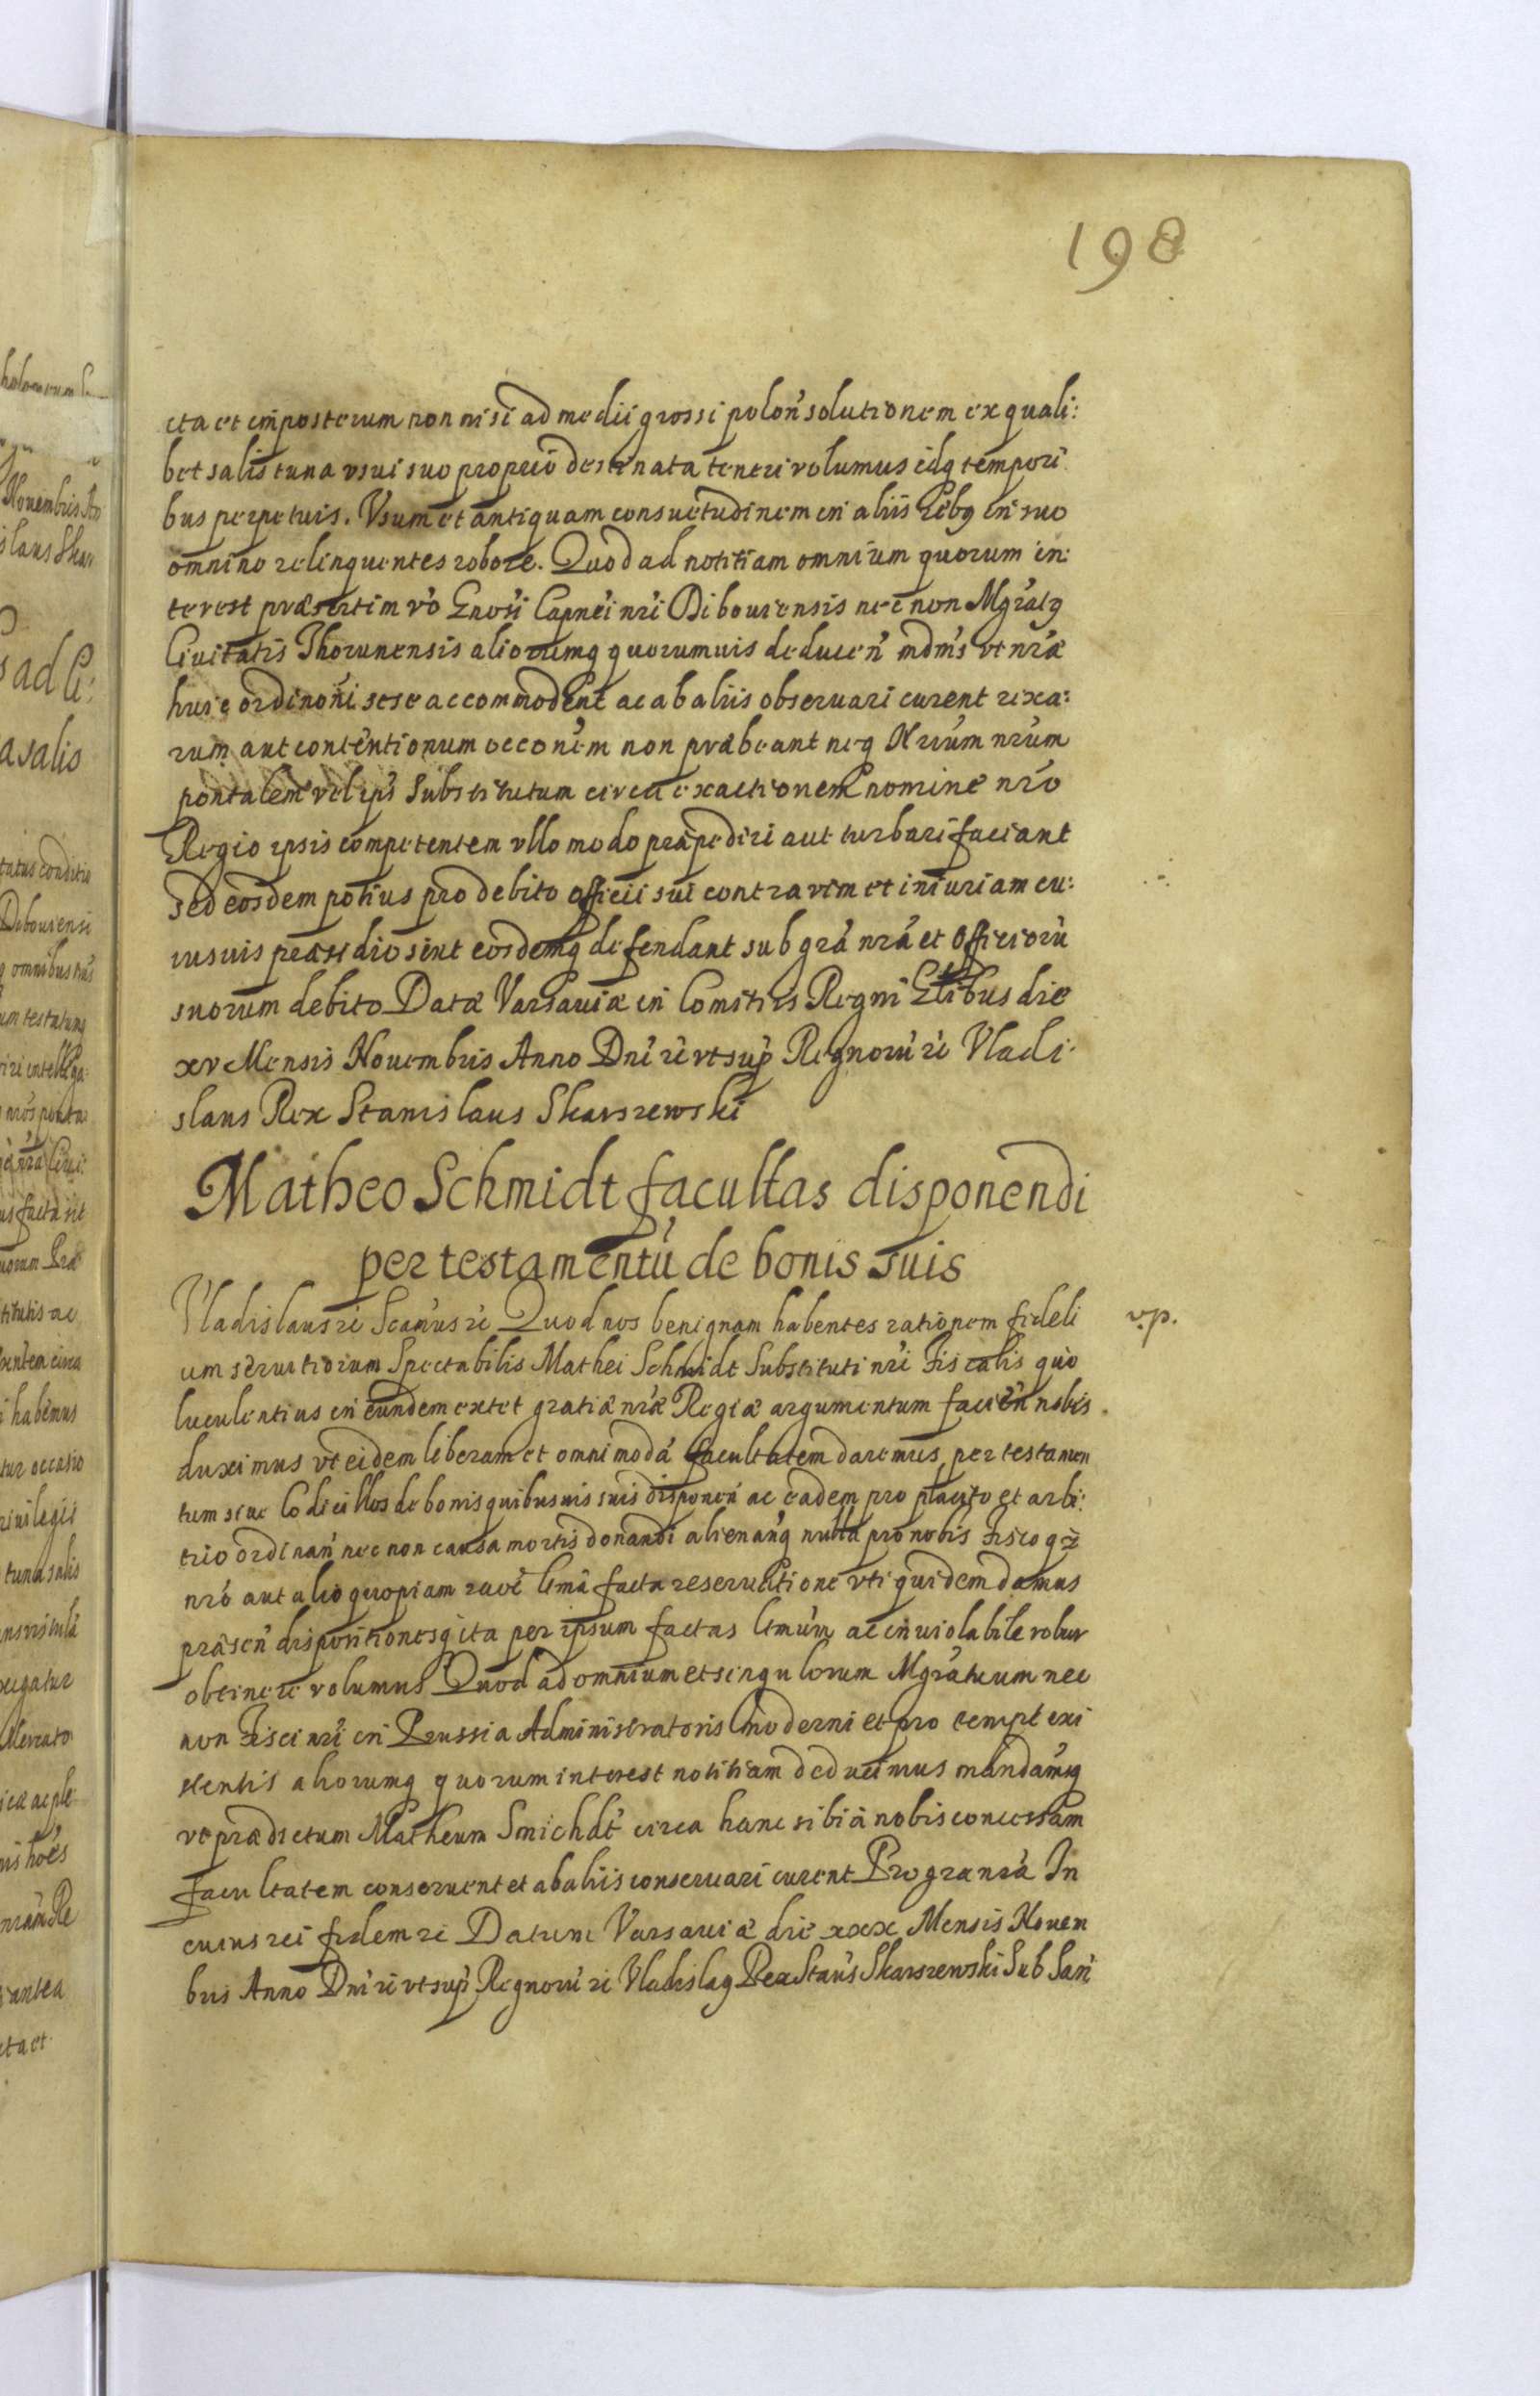 198
cta et imposterum non nisi ad medii grossi polon̄ solutionem ex quali:
bet salis tuna vsui suo proprio destinata teneri volumus idq tempori
bus perpetuis. Vsum et antiquam consuetudinem in aliis rebq in suo
omnino relinquentes robore. Quod ad notitiam omnium quorum in
terest præsertim vo Gnosi Capnei nri Dibouiensis nec non Mgratq
Ciuitatis Thorunensis aliorumq quorumuis deducen mdms vt nræ
huic ordinoni sese accommodent ac ab aliis obseruari curent rixa:
rum aut contentionum occonem non præbeant neq nrum
pontalem vel ips Substitutum circa exactionem nomine nro
Regio ipsis competentem vllo modo præpediri aut turbari faciant
sed eosdem potius pro debito officii sui contra vim et iniuriam cu:
iusuis præsidio sint eosdemq defendant sub gra nra et officioru
suorum debito Datæ Varsauiæ in Comitiis Regni Gnlibus die
xv Mensis Nouembris Anno Dni rc vt sup Regnoru rc Vladi:
slaus Rex Stanislaus Skarszewski
Matheo Schmidt facultas disponendi
per testamentu de bonis suis
v.p.
Vladislaus rc Scanus rc Quod nos benignam habentes rationem fideli
um seruitiorum Spectabilis Mathei Schmidt Substituti nri Fiscalis quo
luculentius in eundem extet gratiæ nræ Regiæ argumentum facien nobis
duximus vt eidem liberam et omnimoda facultatem daremus per testamen
tum siue Codicillos de bonis quibusuis suis disponen ac eadem pro placito et arbi:
trio ordinan nec non causa mortis donandi alienanq nulla pro nobis Fiscoq
nro aut alio quopiam raoe lima facta reseruatione vti quidem damus
præsen dispositionesq ita per ipsum factas limum ac inuiolabile robur
obtinere volumus Quod ad omnium et singulorum Mgratuum nec
non Fisci nri in Prussia Administratoris moderni et pro tempe exi
stentis aliorumq quorum interest notitiam deducimus mandamusq
vt prædictum Matheum Smichdt circa hanc sibi a nobis concessam
facultatem conseruent et ab aliis conseruari curent Pro gra nra In
cuius rei fidem rc Datum Varsauiæ die xxx Mensis Nouem
bris Anno Dni rc vt sup Regnoru rc Vladislaq Rex Stans Skarszewski Sub San